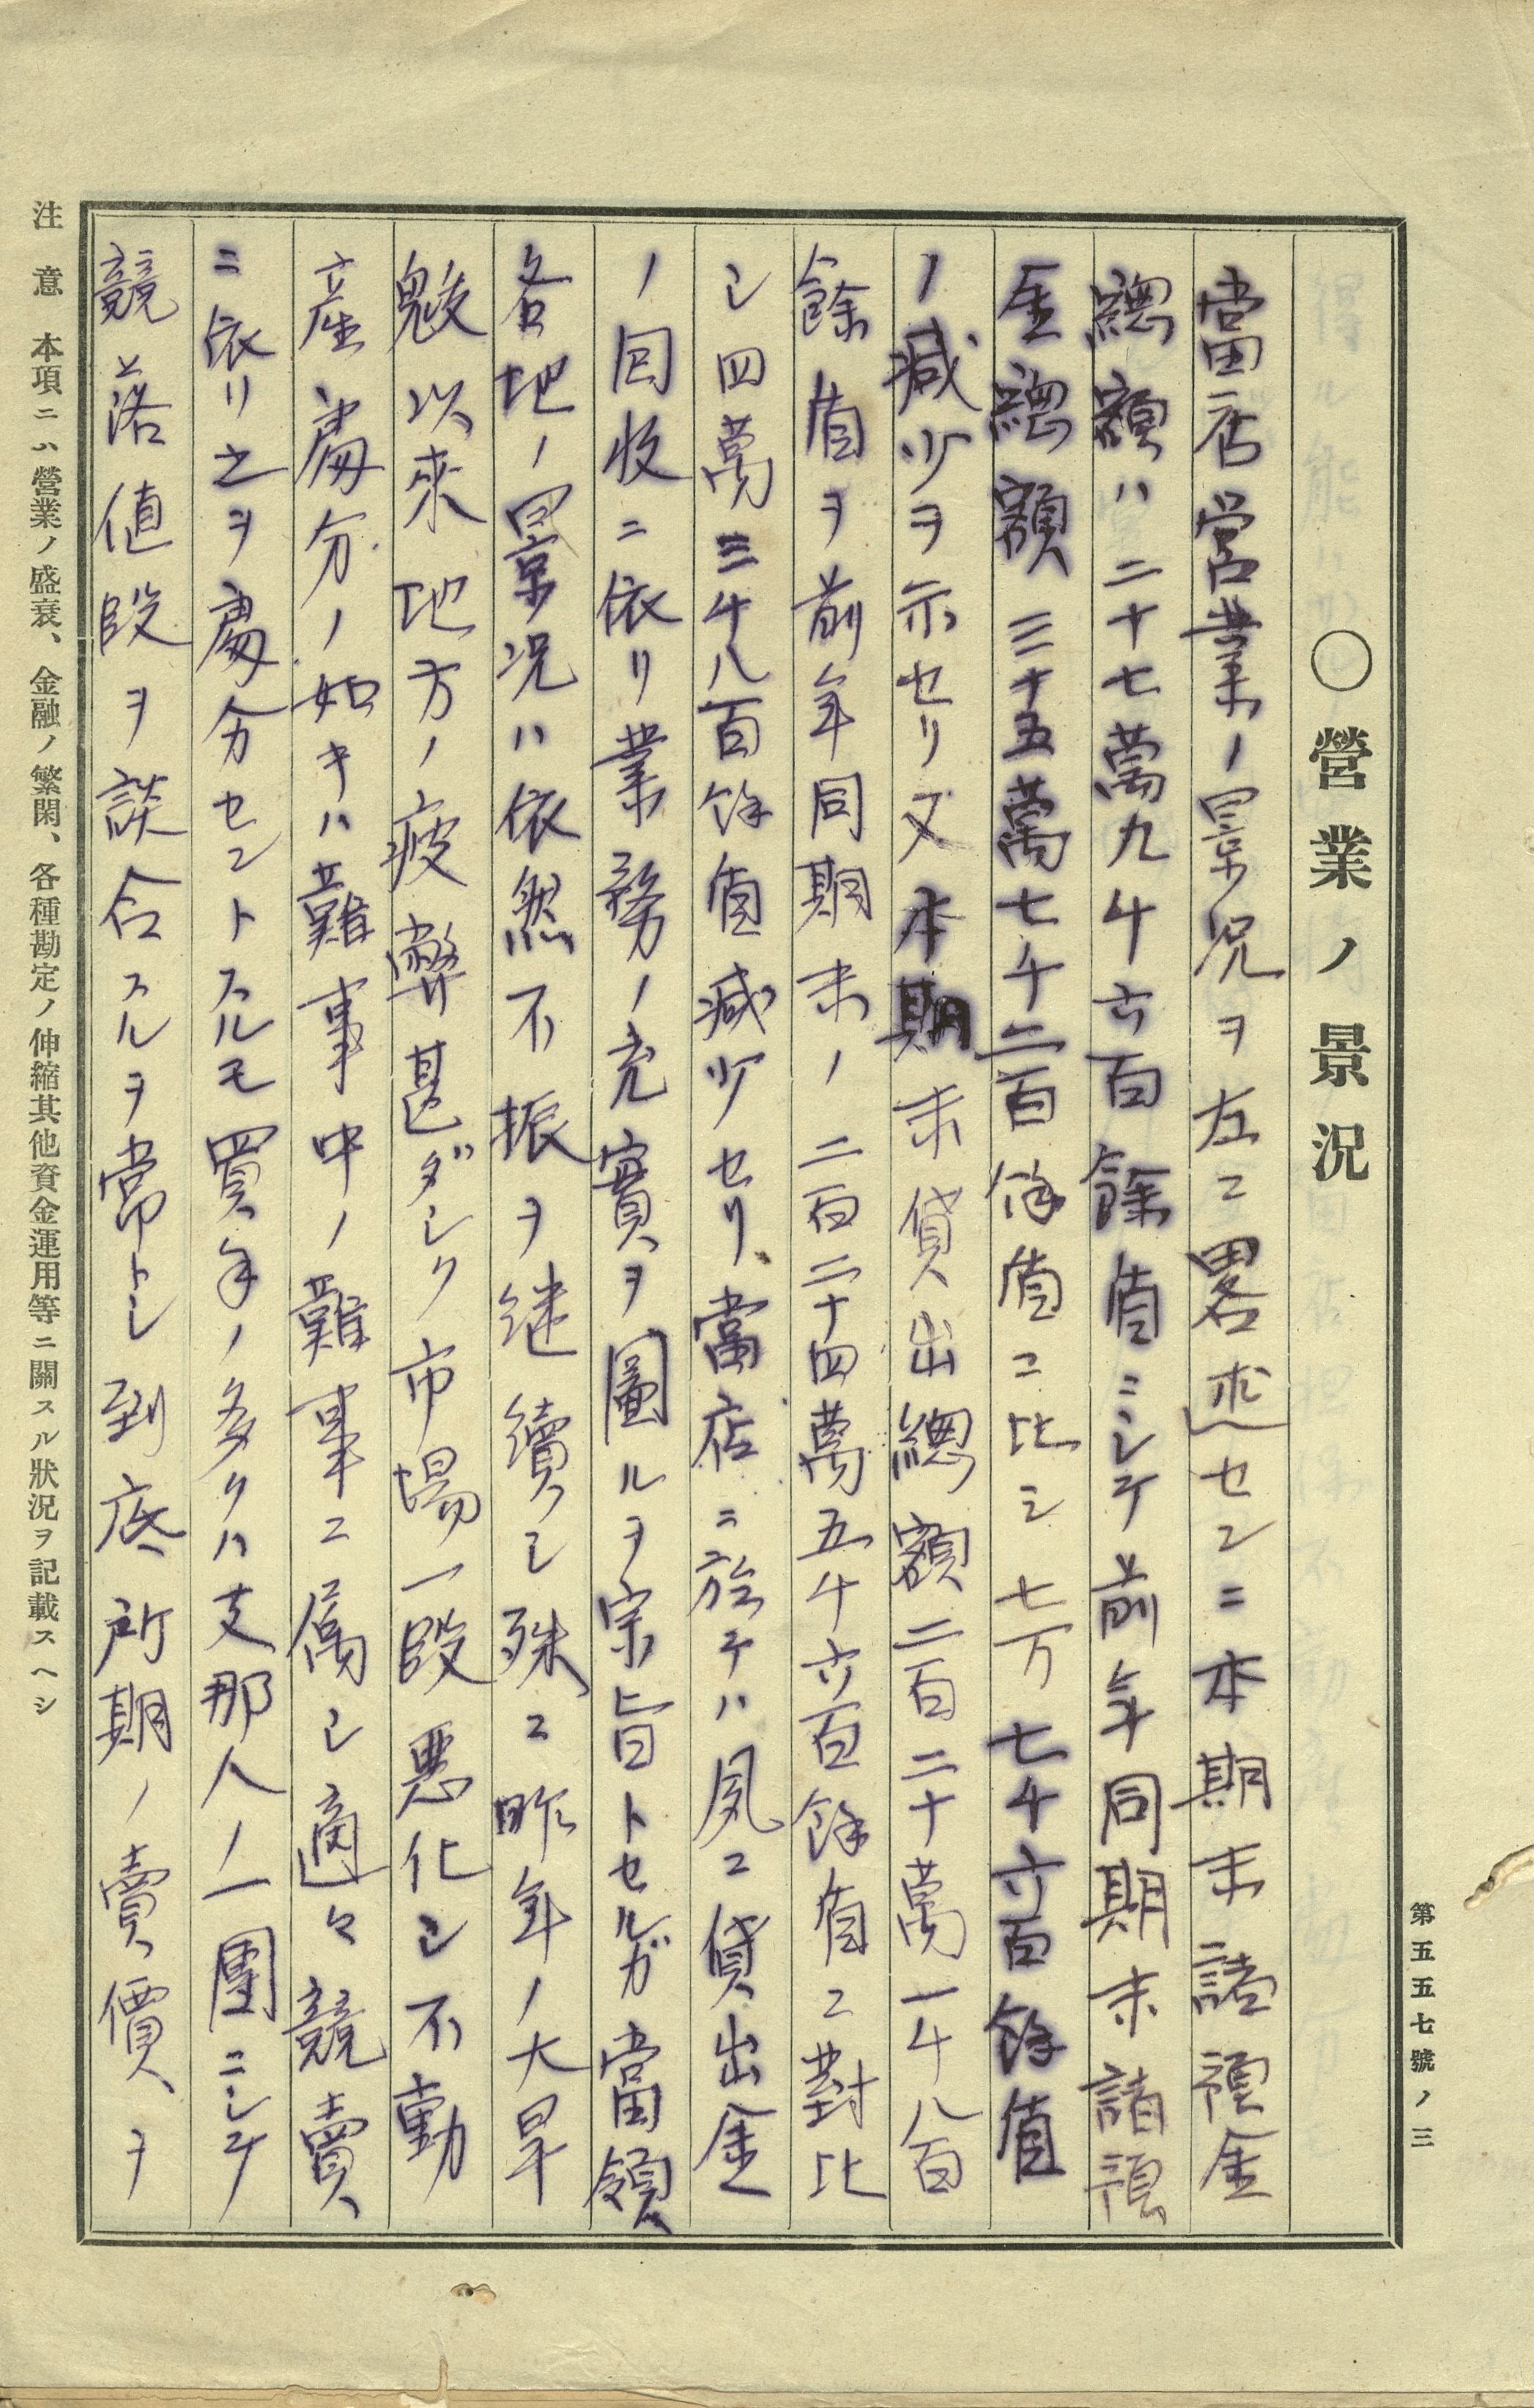 第五五七號ノ三
〇營業ノ景況
當店営業ノ景況ヲ左ニ畧述センニ本期末諸預金
總額ハ二十七萬九千六百餘值ニシテ前年同期末諸預
金總額三十五萬七千二百餘值ニ比シ七万七千六百餘值
ノ減少ヲ示セリ又本期末貸出總額二百二十萬一千八百
餘值ヲ前年同期末ノ二百二十四萬五千六百餘值ニ對比
シ四萬三千八百餘值減少セリ、當店ニ於テハ夙ニ貸出金
ノ回收ニ依リ業務ノ充實ヲ圖ルヲ宗旨トセルガ當領
各地ノ景况ハ依然不振ヲ継續シ殊ニ昨年ノ大旱
魃以來地方ノ疲弊甚ダシク市場一段悪化シ不動
產處分ノ如キハ難事中ノ難事ニ属シ適々競賣
ニ依リ之ヲ處分セントスルモ買手ノ多クハ支那人ノ一團ニシテ
競落値段ヲ談合スルヲ常トシ到底所期ノ賣價ヲ
注意 本項ニハ營業ノ盛衰、金融ノ繁閑、各種勘定ノ伸縮其他資金運用等ニ關スル狀況ヲ記載スヘシ